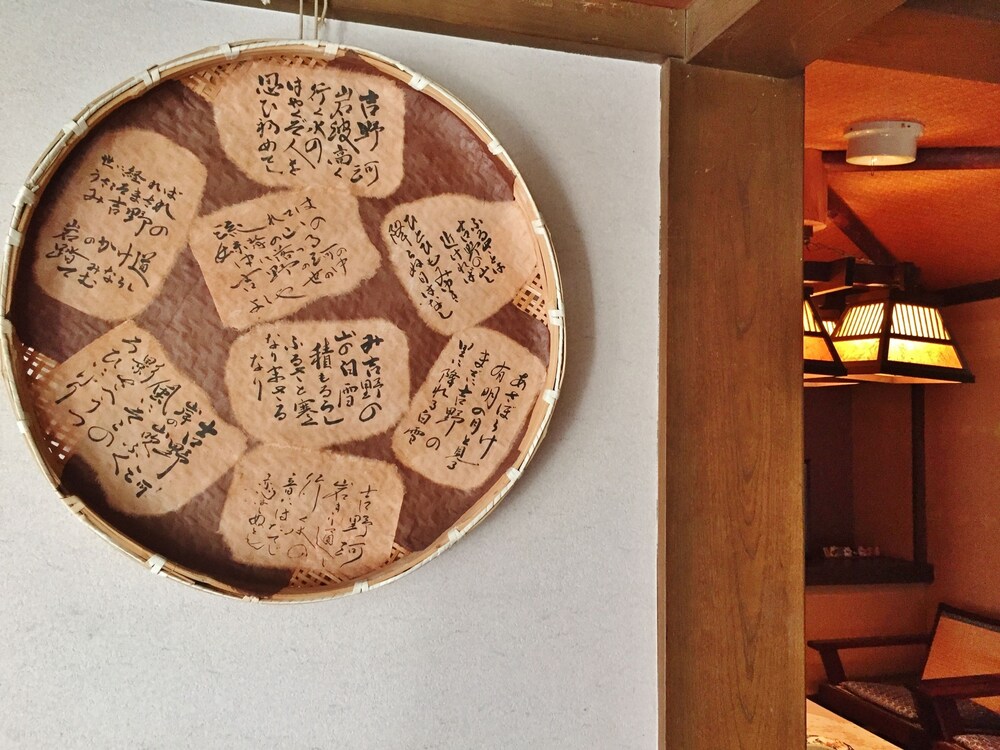 吉野河
岩波高く
行く水の
はやくぞ人を
思ひ初めてし
世に経れば
うさこそまされ
み吉野の
岩のかけ道
踏みならしてむ
流れては
妹背の山の
中に落つる
吉野の河の
よしや世の中
ふるさとは
吉野の山し
近ければ
ひとひもみ雪
降らぬ日はなし
吉野河
岸の山吹
ふく風に
そこの影さへ
うつろひにけり
み吉野の
山の白雪
積もるらし
ふるさと寒く
なりまさる
なり
あさぼらけ
有明の月と見る
までに吉野の
里に降れる白雪
吉野河
岩きり通し
行く水の
音にはたてじ